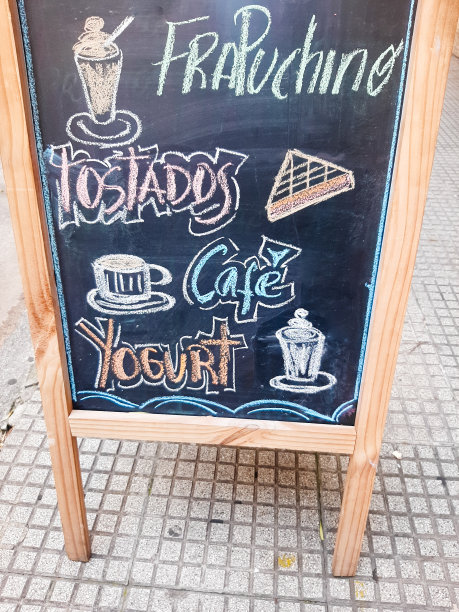 FRAPuchino
TOSTADOS
Café
YOGURT